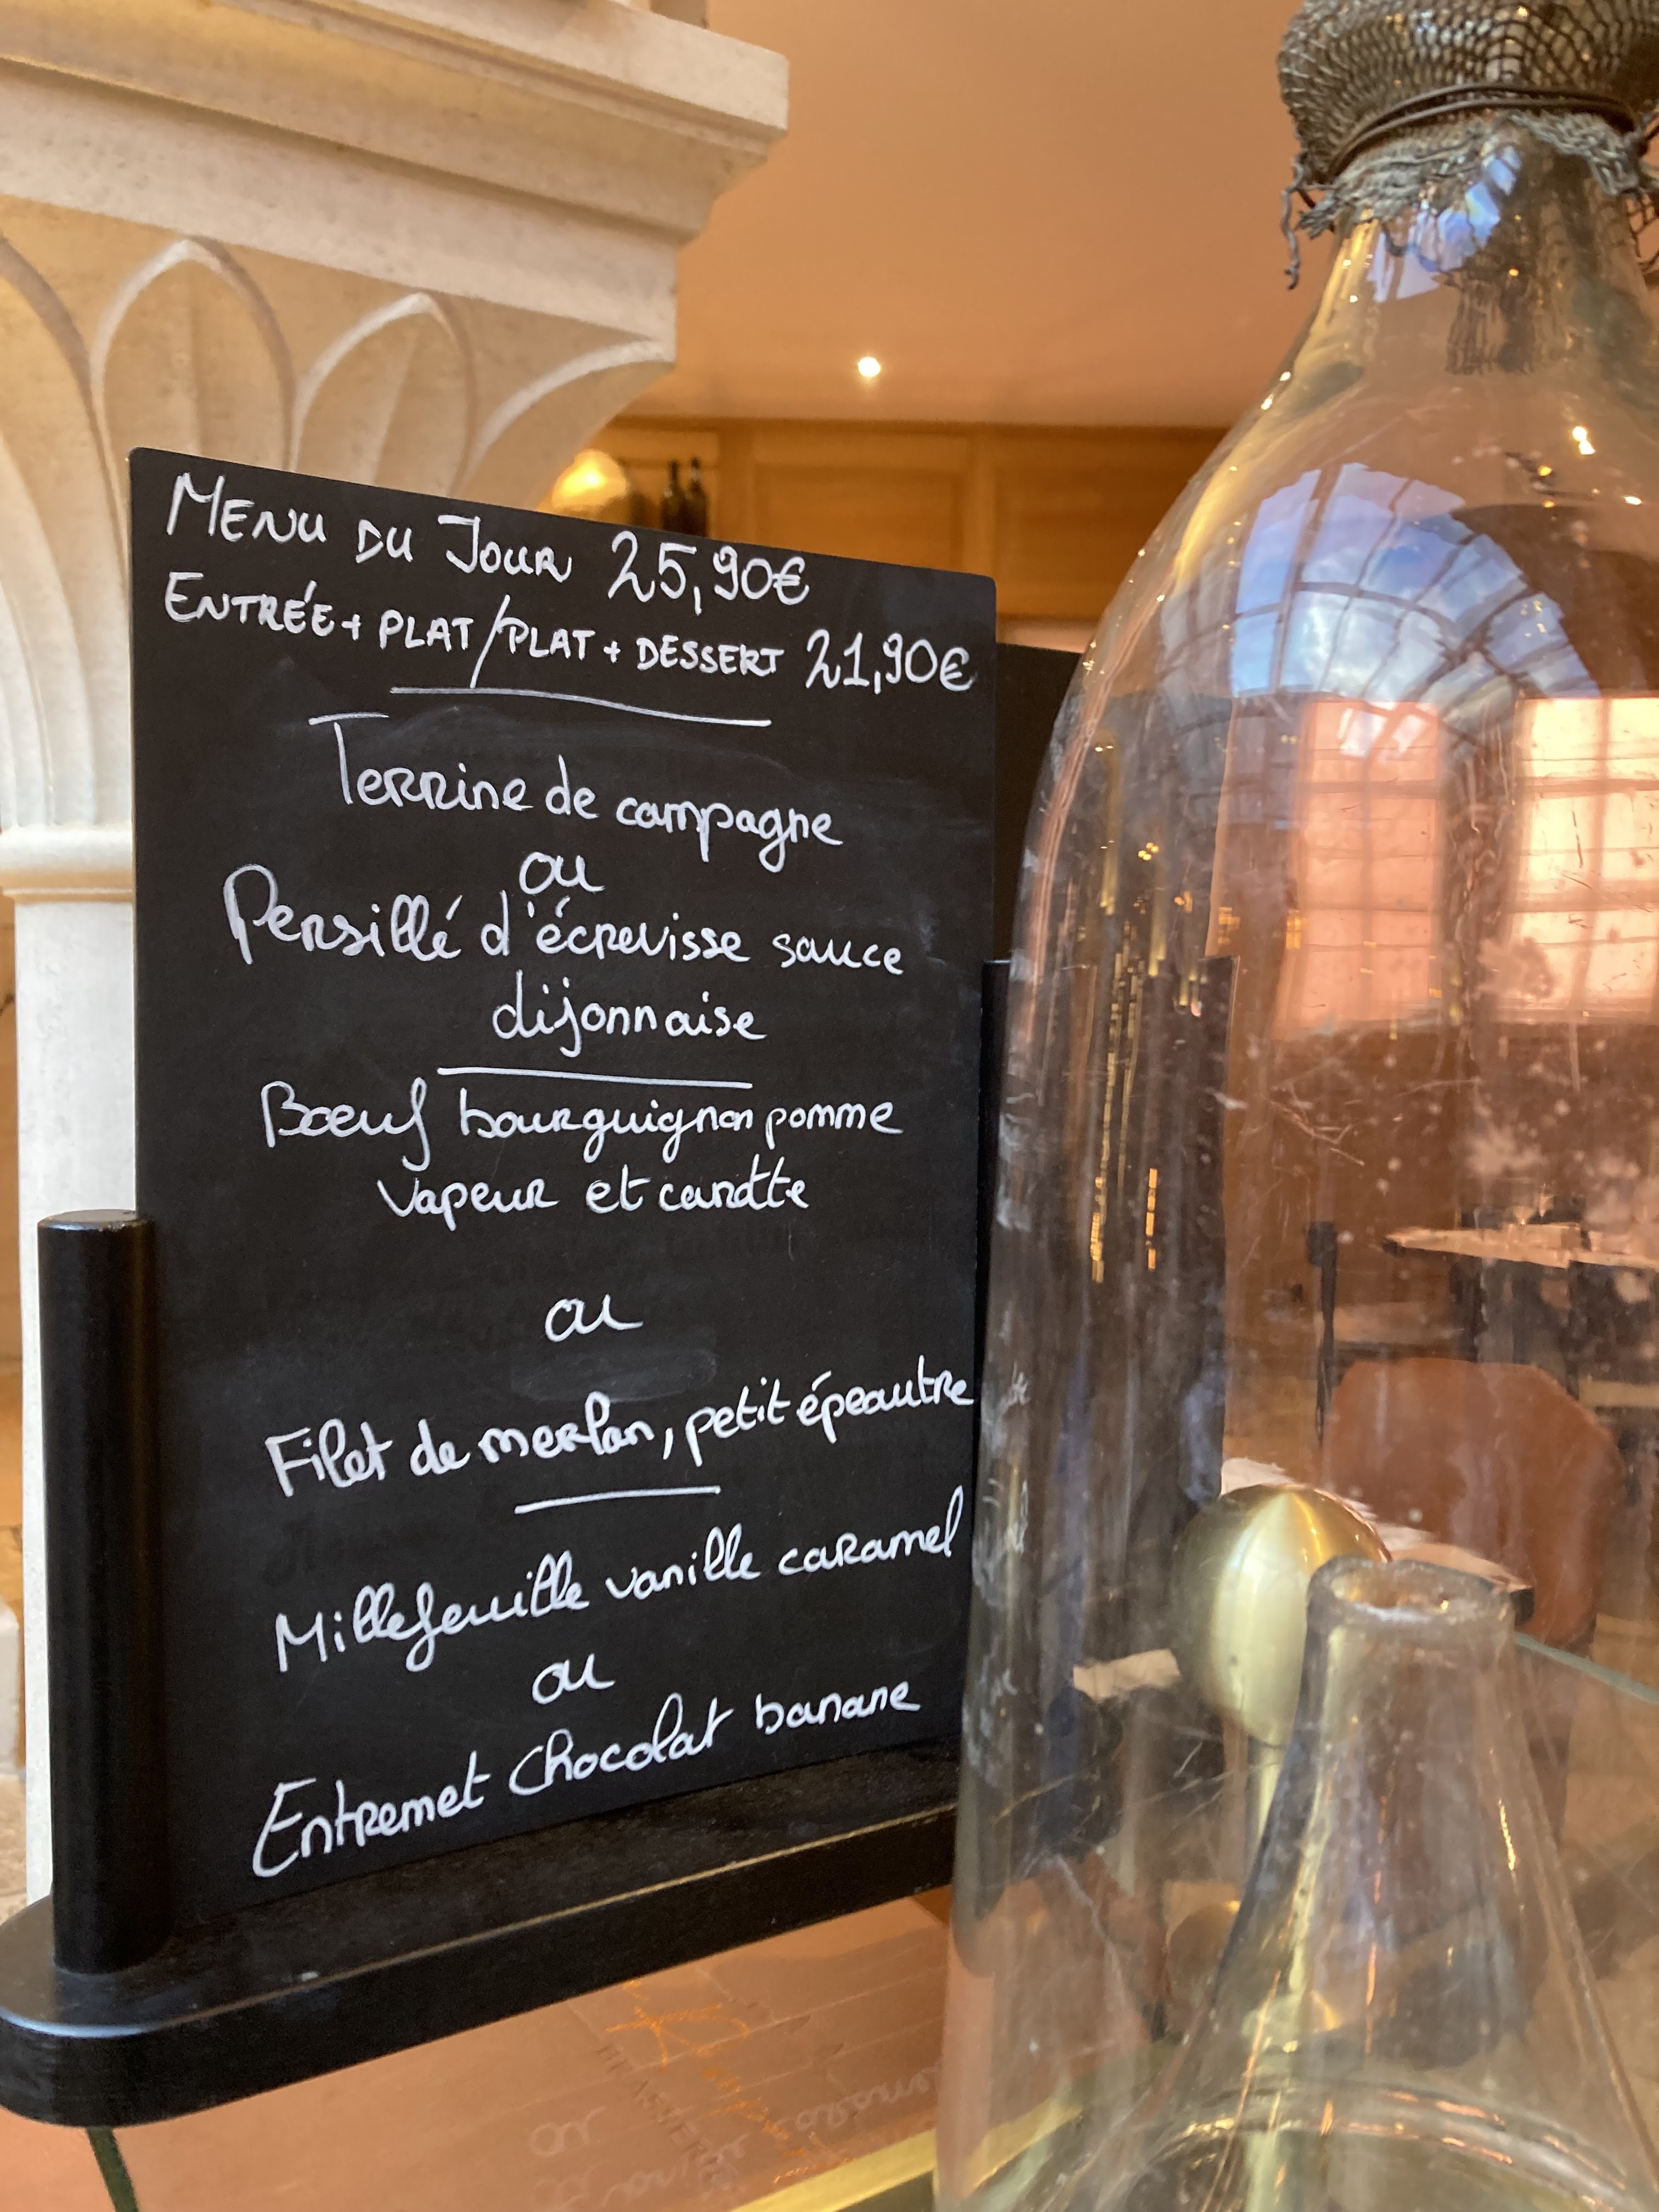 MENU DU JOUR 25,90€
ENTRÉE + PLAT / PLAT + DESSERT 21,90€
Terrine de campagne
ou
Persillé d'écrevisse sauce
dijonnaise
Bœuf bourguignon pomme
vapeur et carotte
ou
Filet de merlan, petit épeautre
Millefeuille vanille caramel
ou
Entremet chocolat banane